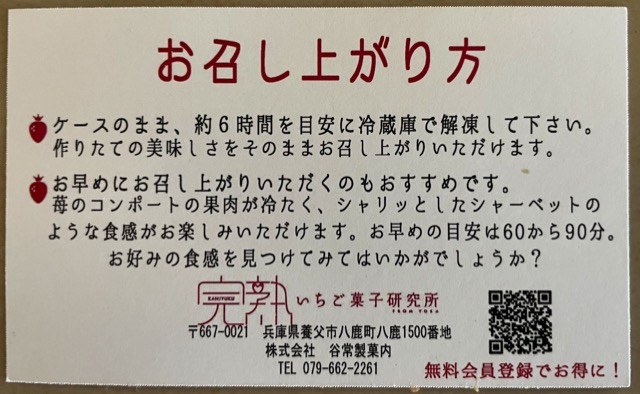 お召し上がり方
ケースのまま、約６時間を目安に冷蔵庫で解凍して下さい。
作りたての美味しさをそのままお召し上がりいただけます。
お早めにお召し上がりいただくのもおすすめです。
苺のコンポートの果肉が冷たく、シャリッとしたシャーベットの
ような食感がお楽しみいただけます。お早めの目安は60から90分。
お好みの食感を見つけてみてはいかがでしょうか？
完熟 KANJYUKU いちご菓子研究所
FROM YOKA
〒667-0021 兵庫県養父市八鹿町八鹿1500番地
株式会社 谷常製菓内
TEL 079-662-2261
無料会員登録でお得に！